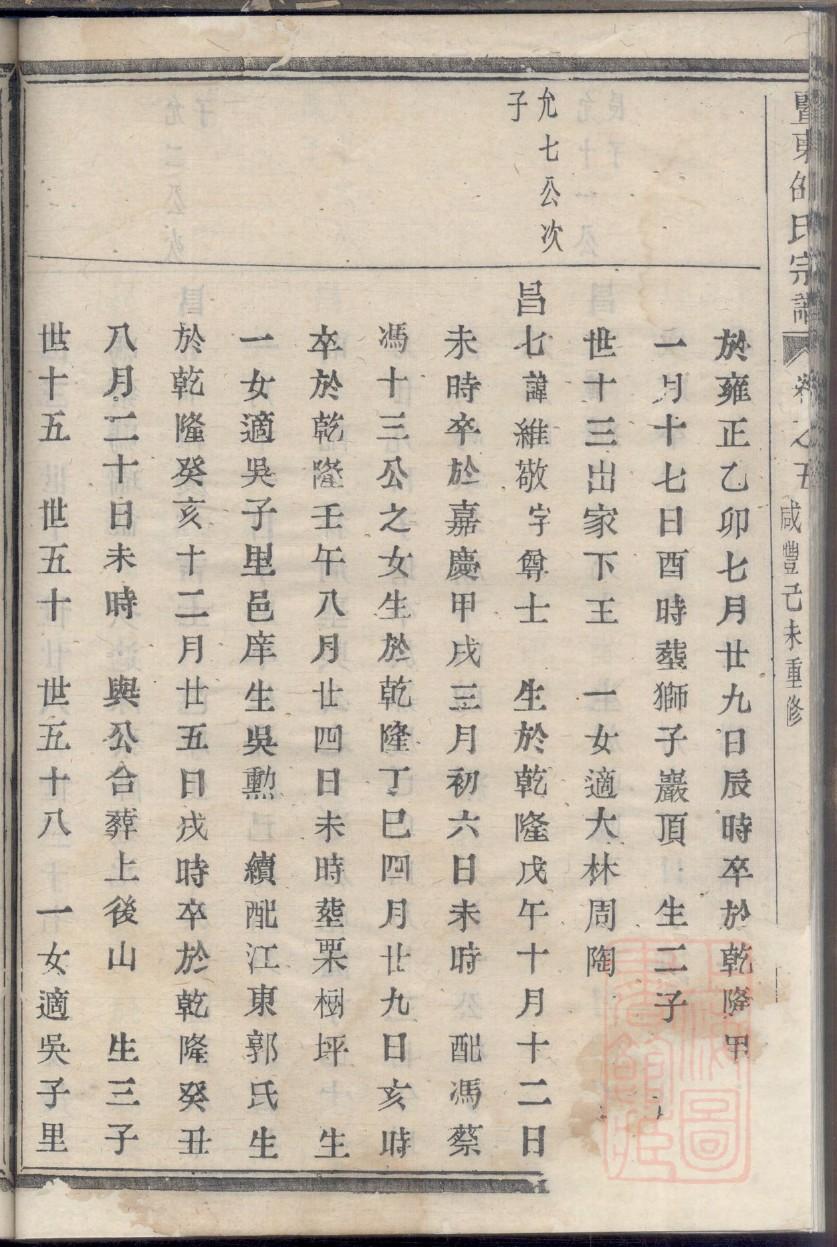 暨東俞氏宗譜 卷之五 咸豐己未重修
於雍正乙卯七月廿九日辰時卒於乾隆甲
一月十七日酉時塟獅子巖頂 生二子
世十三出家下王 一女適大林周陶
允七公次
子
昌七諱維敬字尊士 生於乾隆戊午十月十二日
未時卒於嘉慶甲戌三月初六日未時 配馮蔡
馮十三公之女生於乾隆丁巳四月廿九日亥時
卒於乾隆壬午八月廿四日未時塟栗樹坪 生
一女適吳子里邑庠生吳勲 續配江東郭氏生
於乾隆癸亥十二月廿五日戌時卒於乾隆癸丑
八月二十日未時 與公合葬上後山 生三子
世十五 世五十 世五十八 一女適吳子里